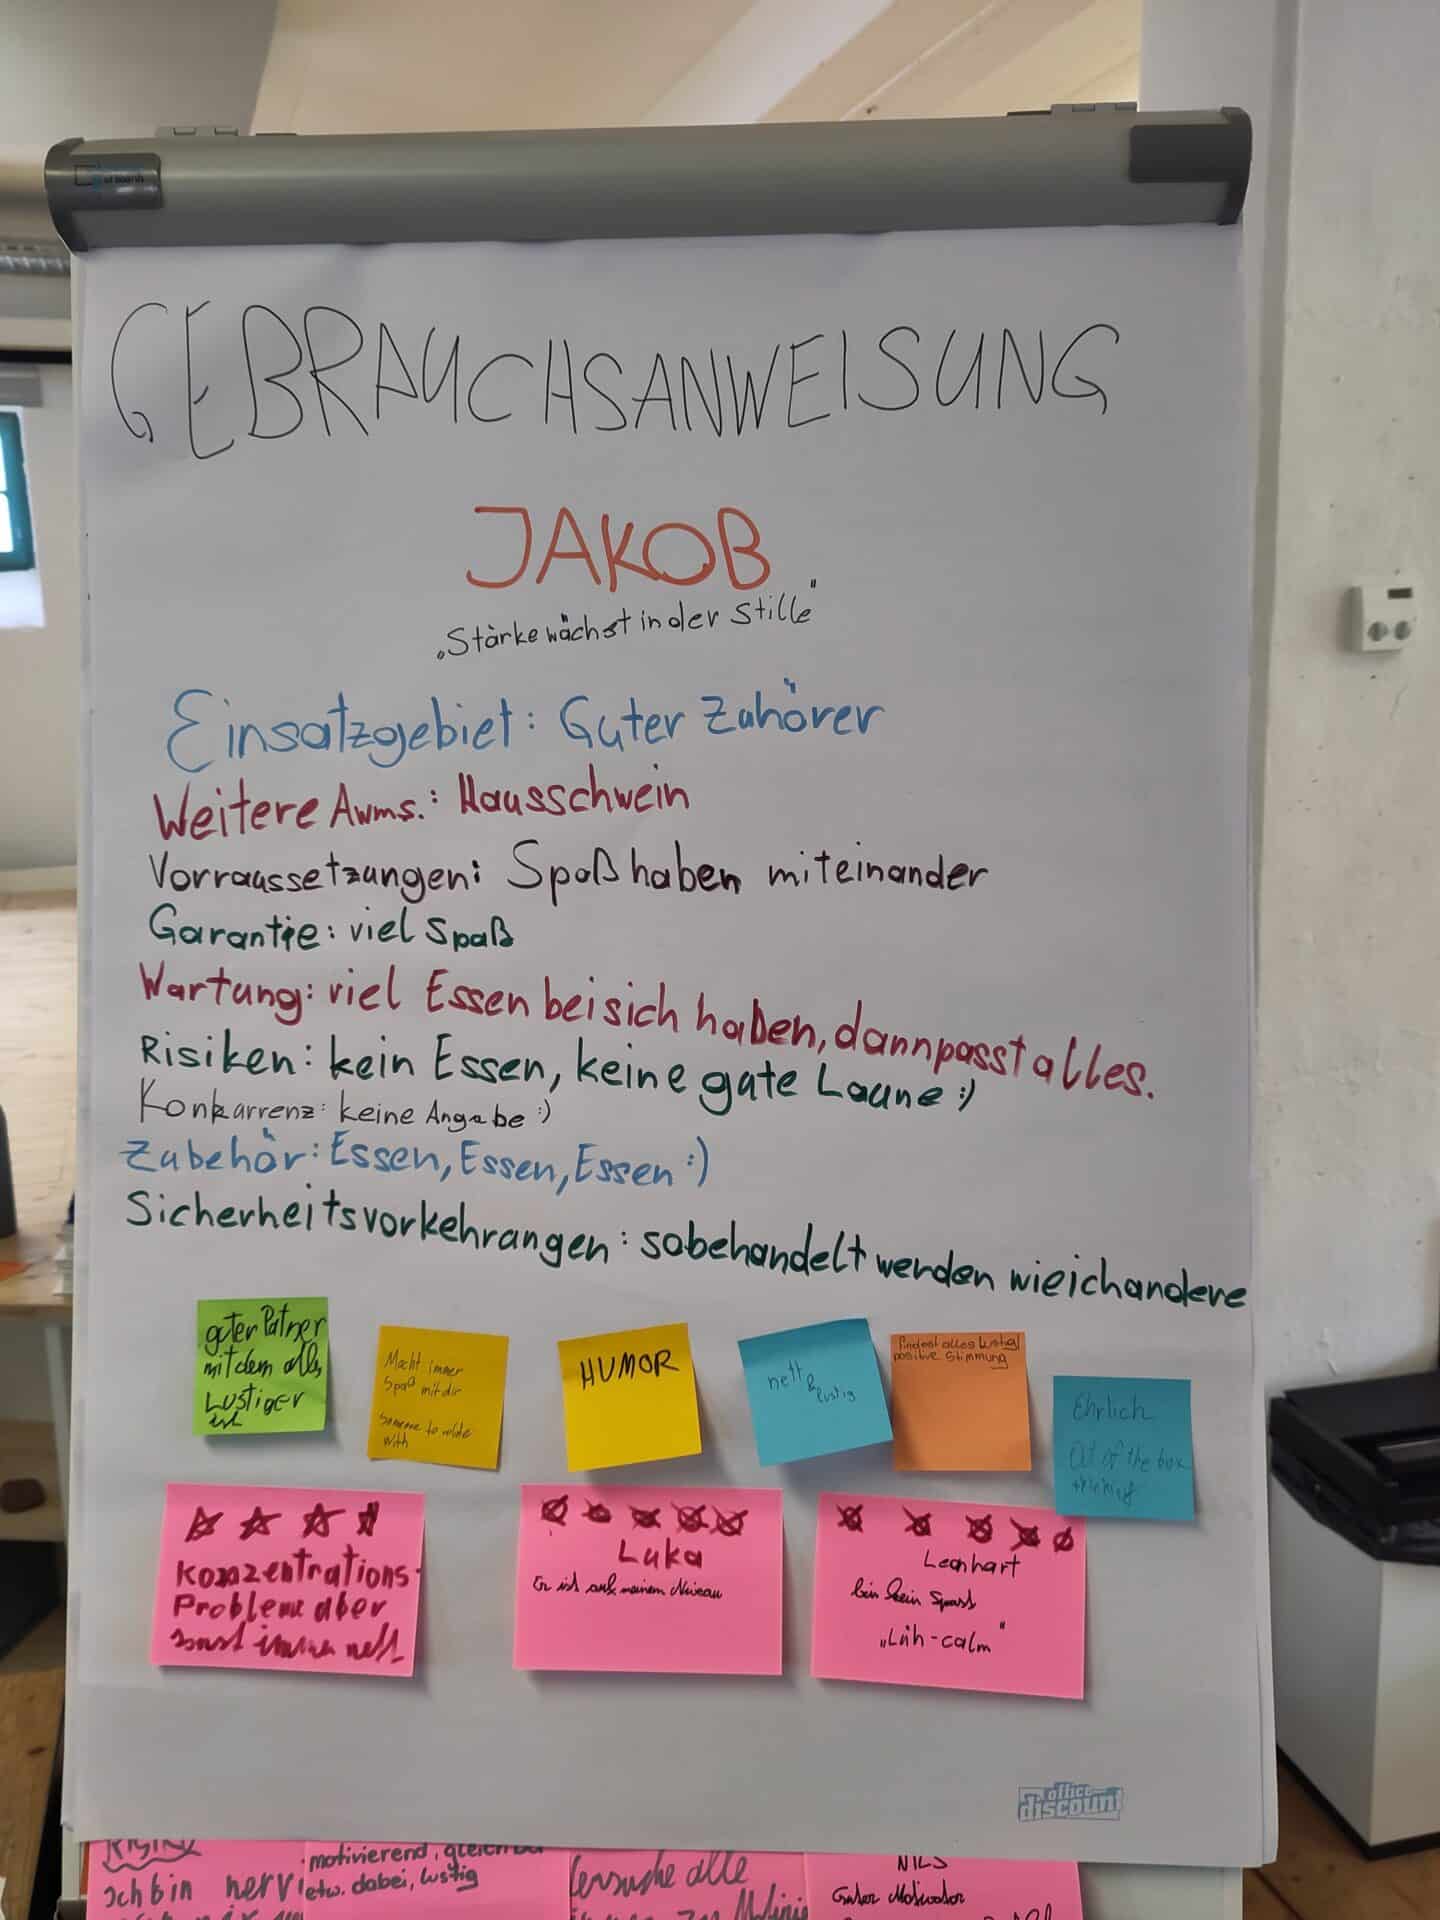 GEBRAUCHSANWEISUNG
JAKOB
„Stärke wächst in der Stille"
Einsatzgebiet: Guter Zuhörer
Weitere Awms.: Hausschwein
Vorraussetzungen: Spaß haben miteinander
Garantie: viel Spaß
Wartung: viel Essen bei sich haben, dann passt alles.
Risiken: kein Essen, keine gute Laune :)
Konkurrenz: keine Angabe :)
Zubehör: Essen, Essen, Essen :)
Sicherheitsvorkehrungen: so behandelt werden wie ich andere
guter Patner
mit dem alles
LUSTIGER
ist
Macht immer
Spaß mit dir
someone to
with
HUMOR
nett
&
lustig
findest alles lustig
positive Stimmung
Ehrlich
Out of the box
thinking
Konzentrations-
Probleme aber
sonst immer nett
Luka
Er ist auf meinem Niveau
Leonhart
bin kein Spast
„Lüh-calm"
office
discount
Ich bin
motivierend, gleich bei
etw. dabei, lustig
Versuche alle
NILS
Guter Motivator